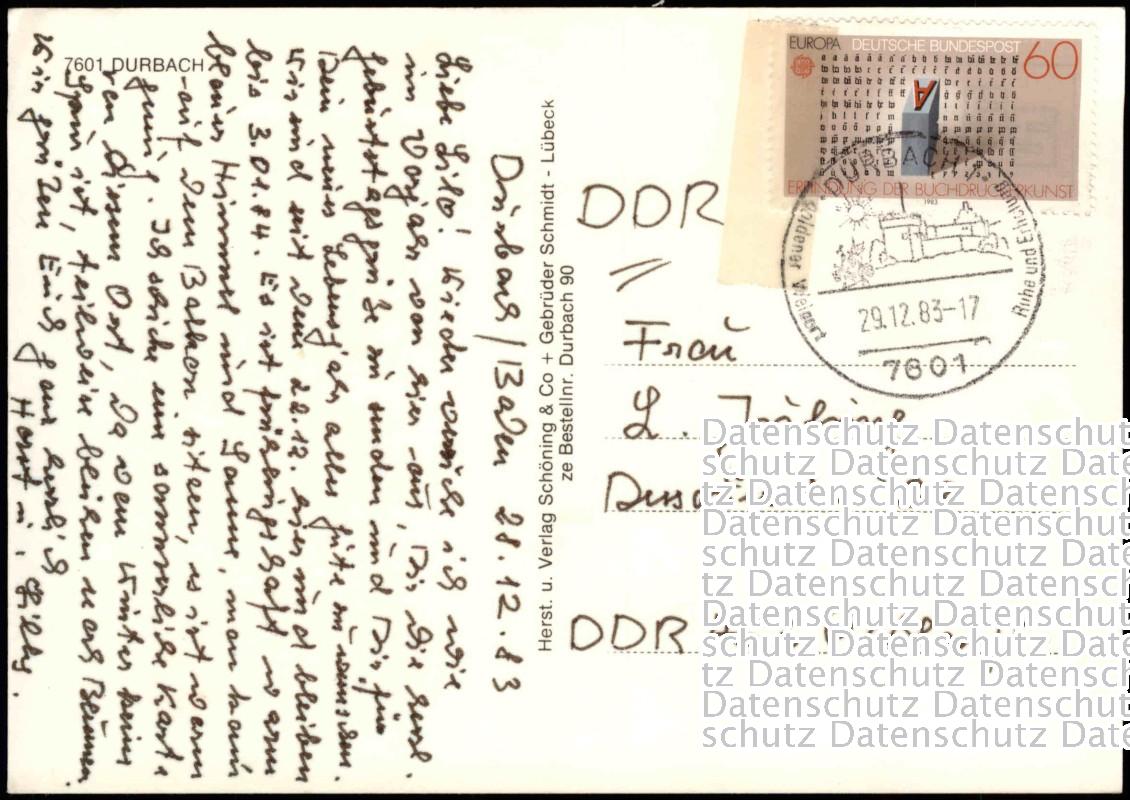 7601 DURBACH
Durbach/Baden 28.12.83
Liebe Lilo! Wieder möchte ich wie
im Vorjahr von hier aus, Dir die herzl.
Geburtstagsgrüße zu senden und Dir, für
Dein neues Lebensjahr alles Gute zu wünschen.
Wir sind seit dem 22.12. hier und bleiben
bis 3.01.84. Es ist frühlingshaft warm
blauer Himmel und Sonne, man kann
auf dem Balkon sitzen, es ist warm
genug. Ich schicke eine sommerliche Karte
von diesem Ort, da wenn Winter kein
ist, teilweise blühen noch Blumen.
Wir grüßen Euch ganz herzlich
Horst u. Hilly.
Herst. u. Verlag Schöning & Co + Gebrüder Schmidt - Lübeck
ze Bestellnr. Durbach 90
EUROPA DEUTSCHE BUNDESPOST 60
A
ERFINDUNG DER BUCHDRUCKERKUNST
1983
DURBACH
Weinort
Ruhe und Erholung
29.12.83-17
7601
DDR
Frau
L.
DDR
Datenschutz Datenschut
schutz Datenschutz Date
Datenschutz Datenschut
schutz Datenschutz Date
Datenschutz Datenschut
tz Datenschutz Datensc
Datenschutz Datenschut
schutz Datenschutz Date
tz Datenschutz Datensc
Datenschutz Datenschut
schutz Datenschutz Date